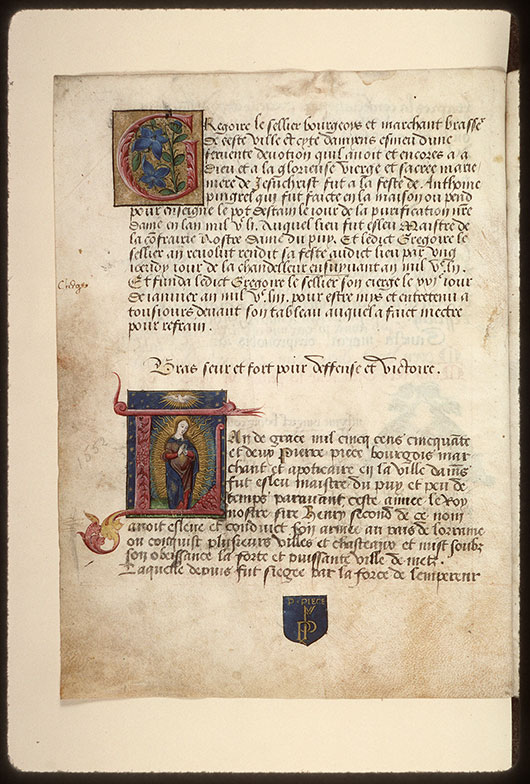 Gregoire le sellier bourgeoys et marchant brasse
de ceste ville et cyte damyens esmeu dune
fervente devotion quil avoit et encores a a
dieu et a la glorieuse vierge et sacree marie
mere de Jesuchrist fut a la feste de Anthoine
pingrel qui fut faicte en la maison ou pend
pour enseigne le pot destain le iour de la purification nre
dame en lan mil vc li. Auquel lieu fut esleu Maistre de
la confrairie Nostre dame du puy. Et ledict Gregoire le
sellier an revolut rendit sa feste audict lieu par ung
ioeudy iour de la chandelleur ensuyuant an mil vc lii.
Et funda ledict Gregoire le sellier son cierge le xvie iour
de iannier an mil vc liii. pour estre mys et entretenu a
tousiours devant son tableau auquel a faict mectre
pour refrain.
Cierge
Bras seur et fort pour deffense et victoire.
1552
Lan de grace mil cincq cens cincquante
et deux Pierre piece bourgois mar
chant et apoticaire en la ville damis
fut esleu maistre du puy et peu de
temps paravant ceste annee le Roy
nostre sire Henry second de ce nom
avoit esleve et conduict son armee au pais de lorraine
ou conquist plusieurs villes et chasteaux et mist soubz
son obeissance la forte et puissante ville de metz.
Laquelle depuis fut siegee par la force de lempereur
P·PIECE